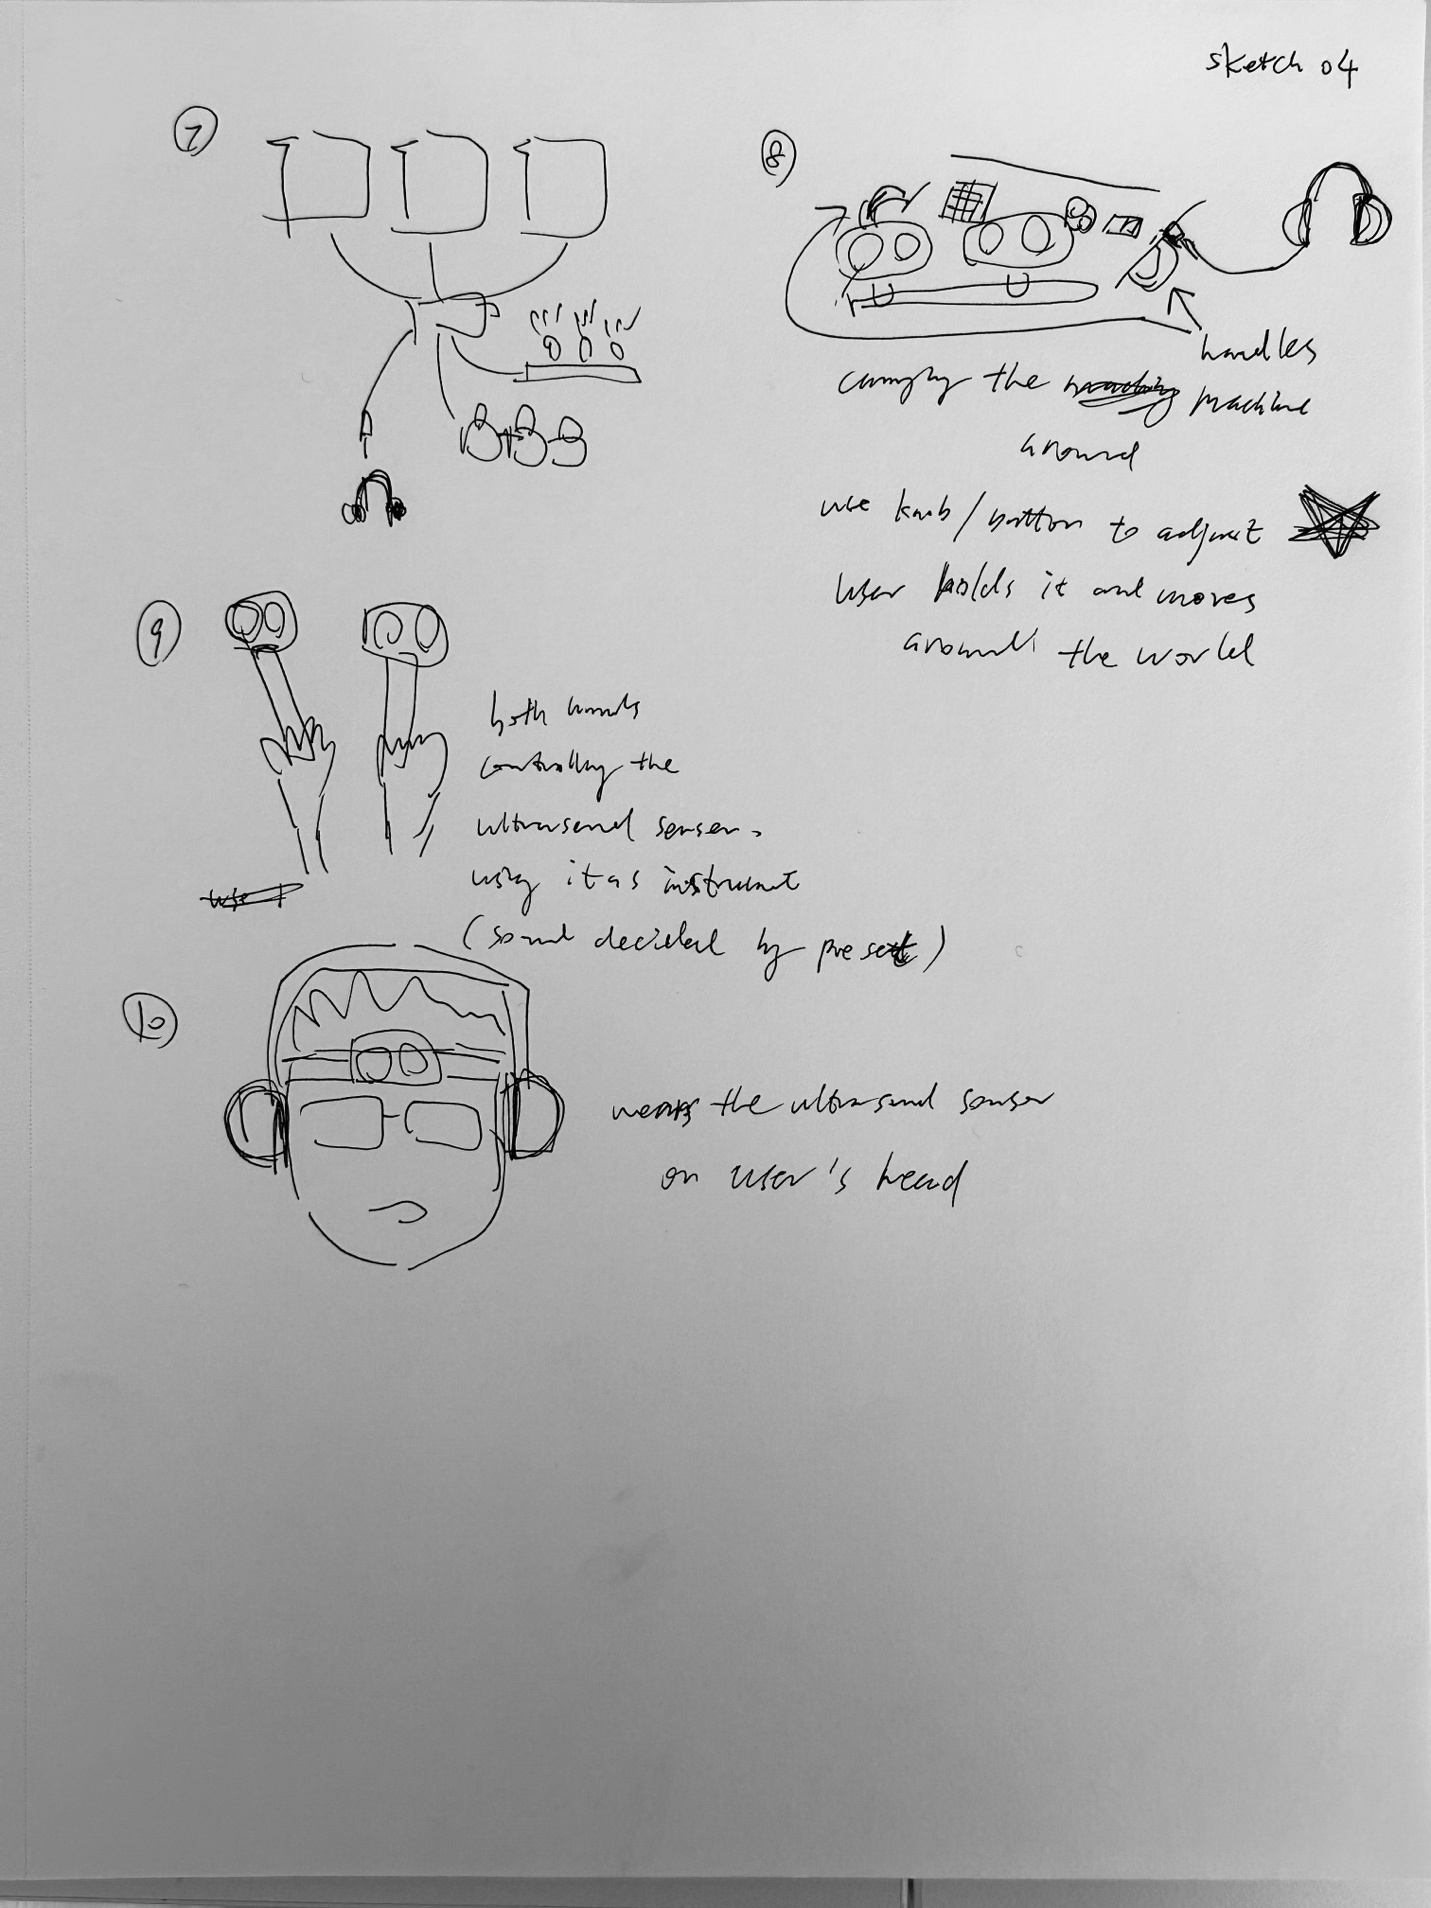 sketch 04
7
8
handles
carrying the machine
around
use knob/button to adjust
user holds it and moves
around the world
9
both hands
controlling the
ultrasend senser.
using it as instrument
(sound decided by preset)
10
wears the ultrasend sensor
on user's head